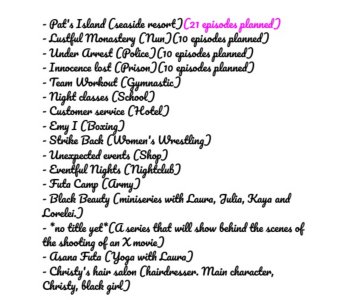 - Pat's Island (seaside resort)(21 episodes planned)
- Lustful Monastery (Nun)(10 episodes planned)
- Under Arrest (Police)(10 episodes planned)
- Innocence lost (Prison)(10 episodes planned)
- Team Workout (Gymnastic)
- Night classes (School)
- Customer service (Hotel)
- Emy I (Boxing)
- Strike Back (Women's Wrestling)
- Unexpected events (Shop)
- Eventful Nights (Nightclub)
- Futa Camp (Army)
- Black Beauty (miniseries with Laura, Julia, Kaya and
Lorelei.)
- *no title yet*(A series that will show behind the scenes of
the shooting of an X movie)
- Asana Futa (Yoga with Laura)
- Christy's hair salon (hairdresser. Main character,
Christy, black girl)